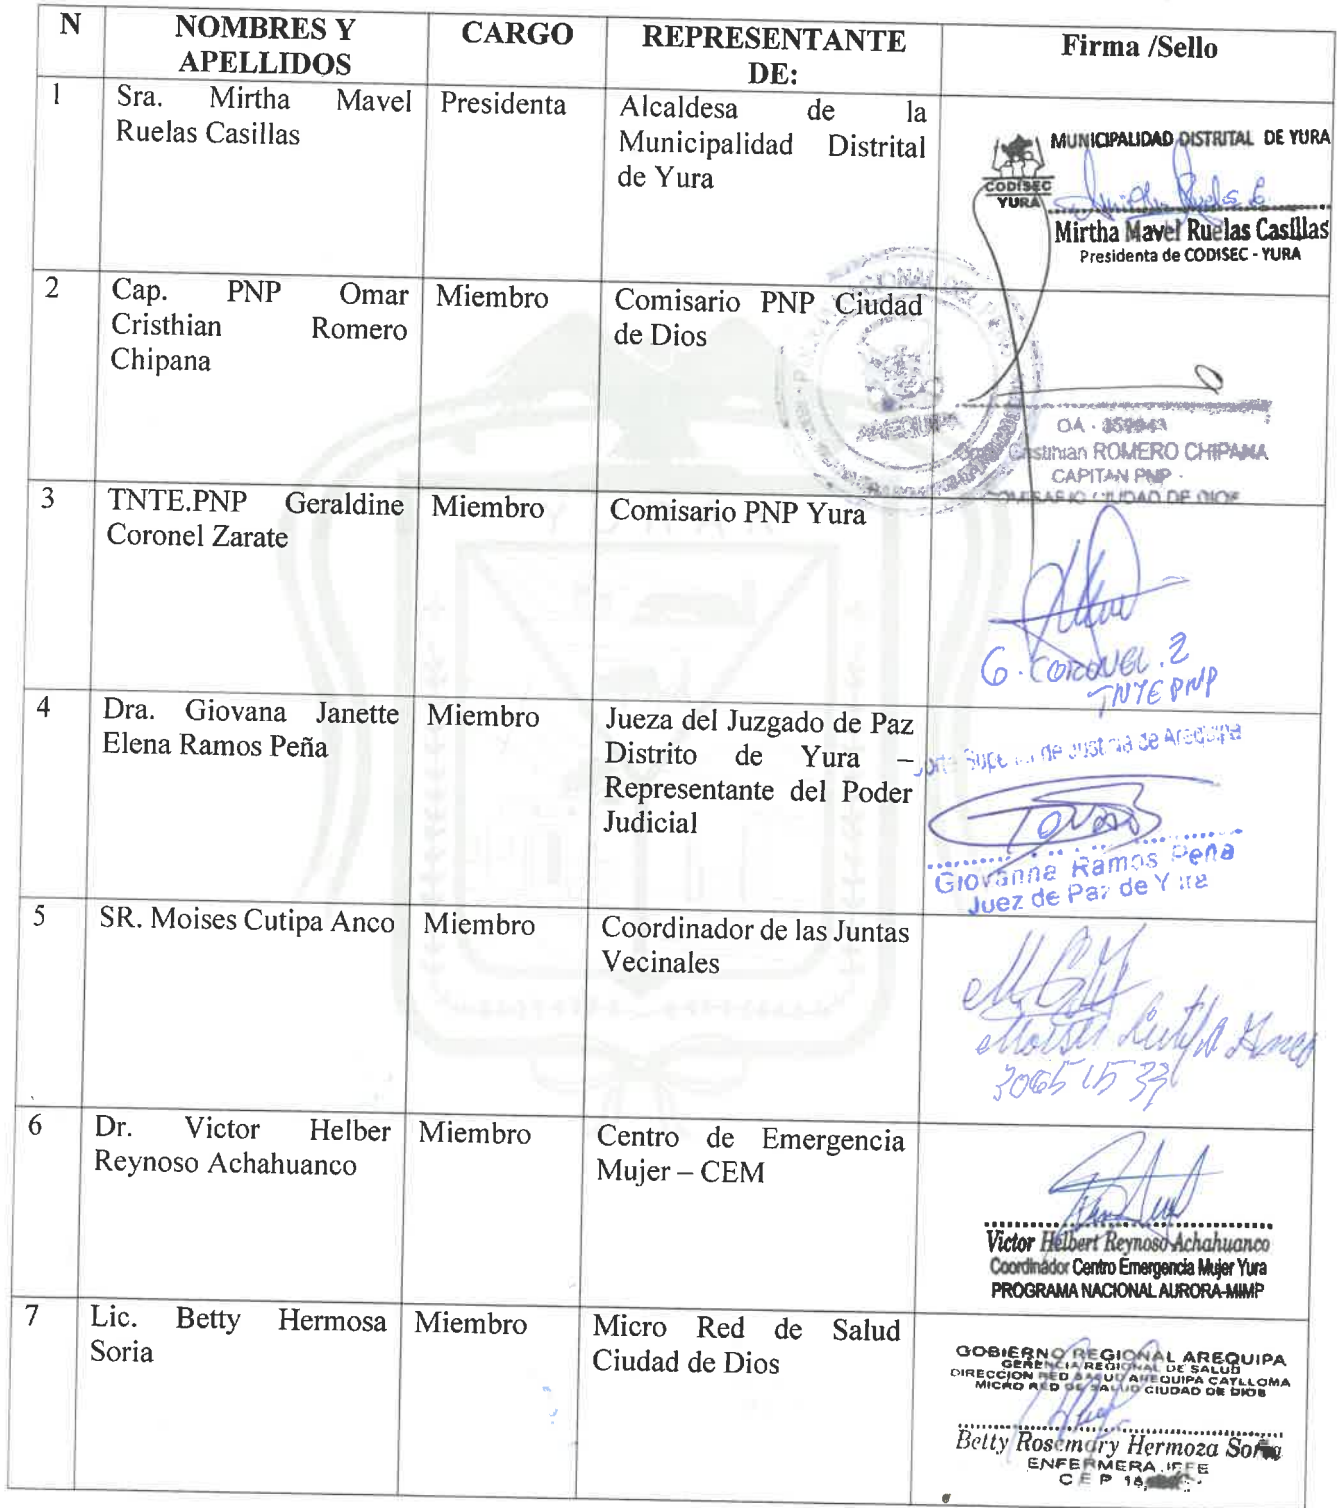 N NOMBRES Y CARGO REPRESENTANTE Firma /Sello
APELLIDOS DE:
1 Sra. Mirtha Mavel Presidenta Alcaldesa de la
Ruelas Casillas Municipalidad Distrital
de Yura
MUNICIPALIDAD DISTRITAL DE YURA
CODISEC
YURA
Mirtha Mavel Ruelas Casillas
Presidenta de CODISEC - YURA
2 Cap. PNP Omar Miembro Comisario PNP Ciudad
Cristhian Romero de Dios
Chipana
OA -
ROMERO CHIPANA
CAPITAN PNP
COMISARIO CIUDAD DE DIOS
3 TNTE.PNP Geraldine Miembro Comisario PNP Yura
Coronel Zarate
G. CORONEL . Z
TNTE PNP
4 Dra. Giovana Janette Miembro Jueza del Juzgado de Paz
Elena Ramos Peña Distrito de Yura –
Representante del Poder
Judicial
Corte Superior de Justicia de Arequipa
Giovanna Ramos Peña
Juez de Paz de Yura
5 SR. Moises Cutipa Anco Miembro Coordinador de las Juntas
Vecinales
Moises Cutipa Anco
6 Dr. Victor Helber Miembro Centro de Emergencia
Reynoso Achahuanco Mujer – CEM
Victor Helbert Reynoso Achahuanco
Coordinador Centro Emergencia Mujer Yura
PROGRAMA NACIONAL AURORA-MIMP
7 Lic. Betty Hermosa Miembro Micro Red de Salud
Soria Ciudad de Dios
GOBIERNO REGIONAL AREQUIPA
GERENCIA REGIONAL DE SALUD
DIRECCION RED SALUD AREQUIPA CAYLLOMA
MICRO RED DE SALUD CIUDAD DE DIOS
Betty Rosemary Hermoza Soria
ENFERMERA JEFE
C E P